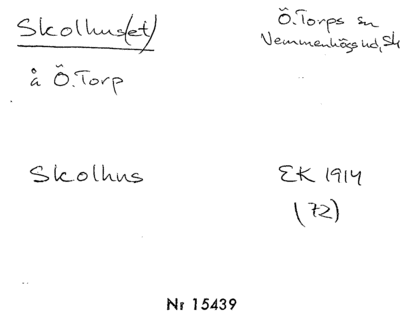 Skolhus(et)
Ö. Torps sn
Vemmenhögs hd, Sk
å Ö. Torp
Skolhus
EK 1914
(72)
Nr 15439